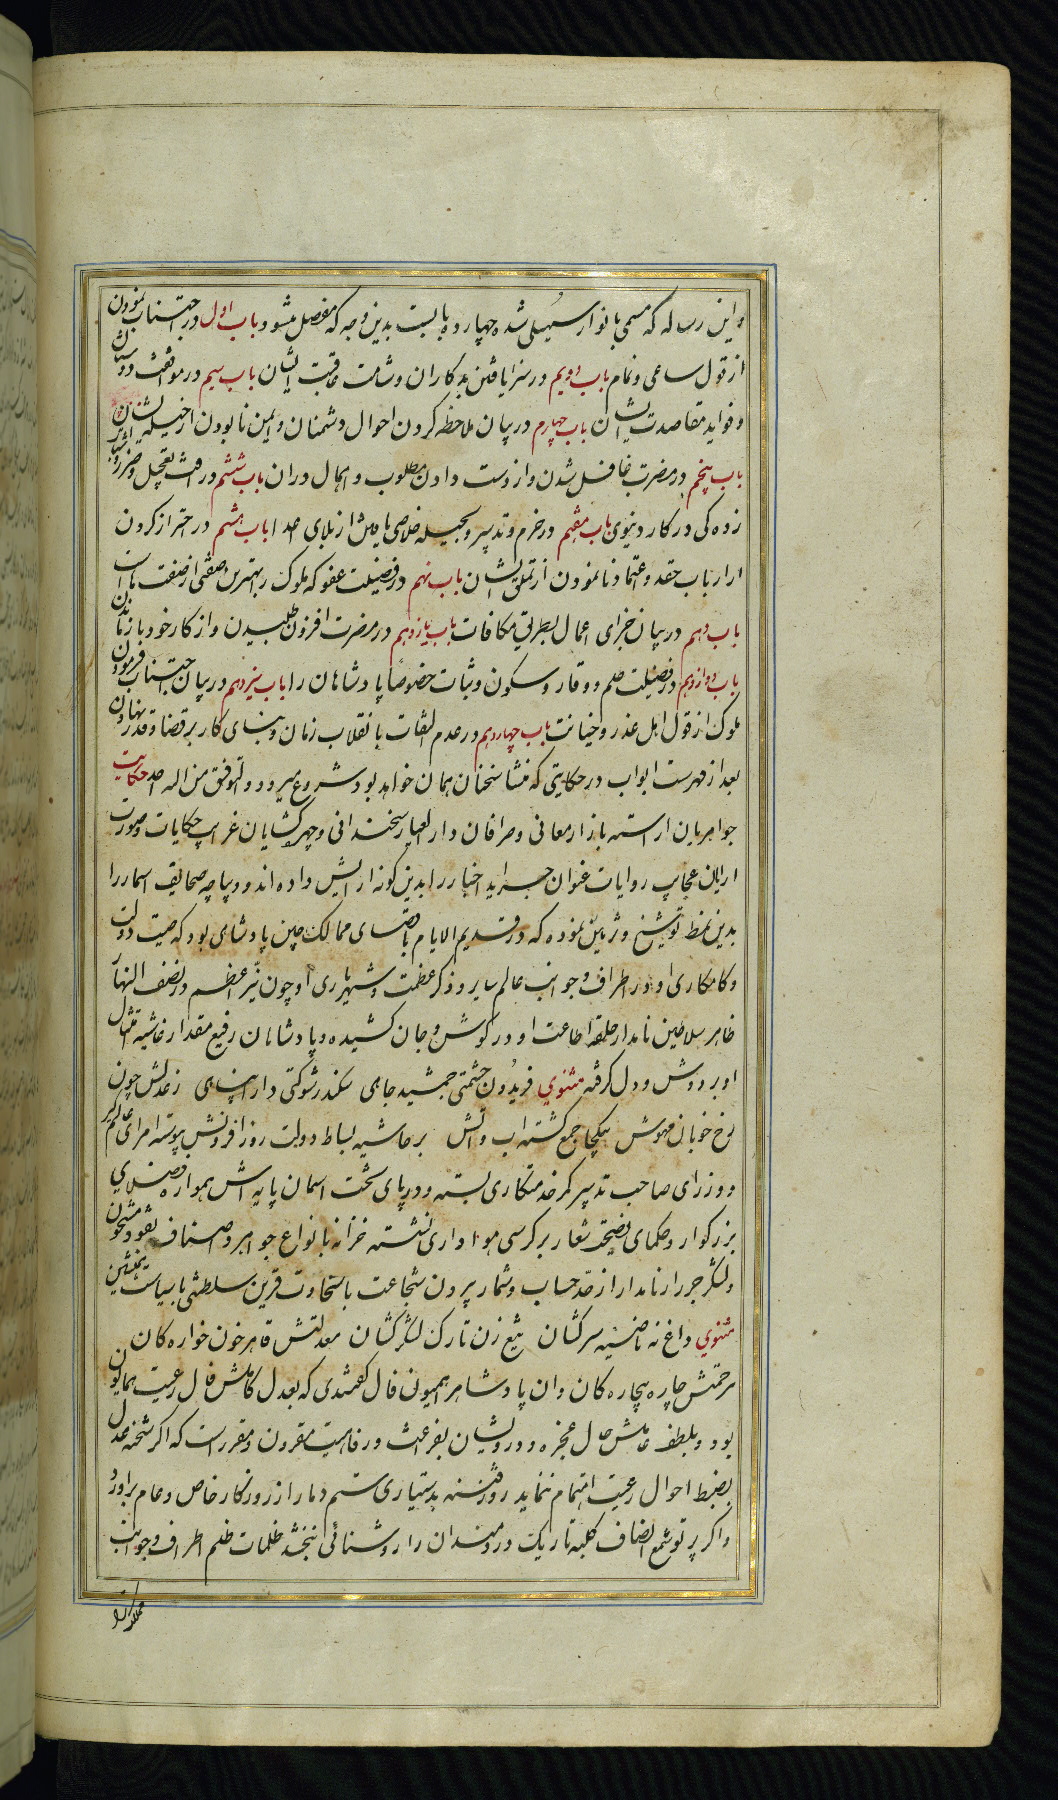 و این رساله که مسمی بانوار سهیلی شده چهارده بابست بدین وجه که مفصل میشود باب اول در اجتناب نمودن
از قول ساعی و نمام باب دویم در سزا یافتن بدکاران و شامت عاقبت ایشان باب سیم در موافقت دوستان
و فواید مقاصدت ایشان باب چهارم در بیان ملاحظه کردن احوال دشمنان و ایمن نابودن از حیله ایشان
باب پنجم در مضرت غافل شدن و از دست دادن مطلوب و اهمال در ان باب ششم در افت تعجیل و ضرر شتاب
زده کی در کار دنیوی باب هفتم در حزم و تدبیر و بحیله خلاصی یافتن از بلای اعدا باب هشتم در احتراز کردن
از ارباب حقد و اعتماد نانمودن از تملق ایشان باب نهم در فضیلت عفو که ملوک را بهترین صفتی از صفت
باب دهم در بیان جزای اعمال بطریق مکافات باب یازدهم در مضرت افزون طلبیدن و از کار خود بازماندن
باب دوازدهم در فضیلت حلم و وقار و سکون و ثبات خصوصاً پادشاهان را باب سیزدهم در بیان اجتناب فرمودن
ملوک از قول اهل غدر و خیانت باب چهاردهم در عدم التفات بانقلاب زمان و بنای کار بر قضا و قدر نهادن
بعد از فهرست ابواب در حکایتی که منشا سخنان همان خواهد بود شروع میرود و التوفیق من اله احد حکایت
جواهریان اراسته بازار معانی و صرافان دار العیار سخندانی و چهره کشایان غرایب حکایات و صورت
ارایان عجایب روایات عنوان جراید اخبار را بدین کونه ارایش داده اند و دیباچه صحایف اسمار را
بدین نمط توشیح و تزیین نموده که در قدیم الایام باقصای ممالک چین پادشای بود که صیت دولت
و کامکاری او در اطراف و جوانب عالم سایر و ذکر عظمت و شهریاری او چون نیر اعظم در نصف النهار
ظاهر سلاطین نامدار حلقه اطاعت او در کوش و جان کشیده و پادشاهان رفیع مقدار غاشیه امتثال
او بر دوش و دل کرفته مثنوی فریدون حشمتی جمشید جاهی سکندر شوکتی دارا پناهی ز عدلش چون
رخ خوبان مهوش بیکجا جمع کشته اب و اتش بر حاشیه بساط دولت روز افزونش پیوسته امرای عالم کیر
و وزرای صاحب تدبیر کمر خدمتکاری بسته و در پای تخت اسمان پایه اش همواره فضلای
بزرکوار و حکمای نصیحت شعار بر کرسی هواداری نشسته خزانه بانواع جواهر و اصناف نقود مشحون
و لشکر جرار نامدار از حد حساب و شمار بیرون شجاعت با سخاوت قرین سلطنتی با سیاست همنشین
مثنوی داغ نه ناصیه سرکشان تیغ زن تارک لشکرکشان معدلتش قاهر خون خواره کان
مرحمتش چاره بیچاره کان وان پادشاهرا همیون فال کفتندی که بعدل کاملش فال رعیت همایون
بود و بلطف شاملش حال عجزه و درویشان بفراغت و رفاهیت مقرون و مقرر است که اکر شحنه عدل
بضبط احوال رعیت اهتمام ننماید روز فتنه بدستیاری ستم دمار از روزکار خاص و عام براورد
و اکر پرتو شمع انصاف کلبه تاریک دردمندان را روشنائی نبخشد ظلمات ظلم اطراف و جوانب
مملکت را